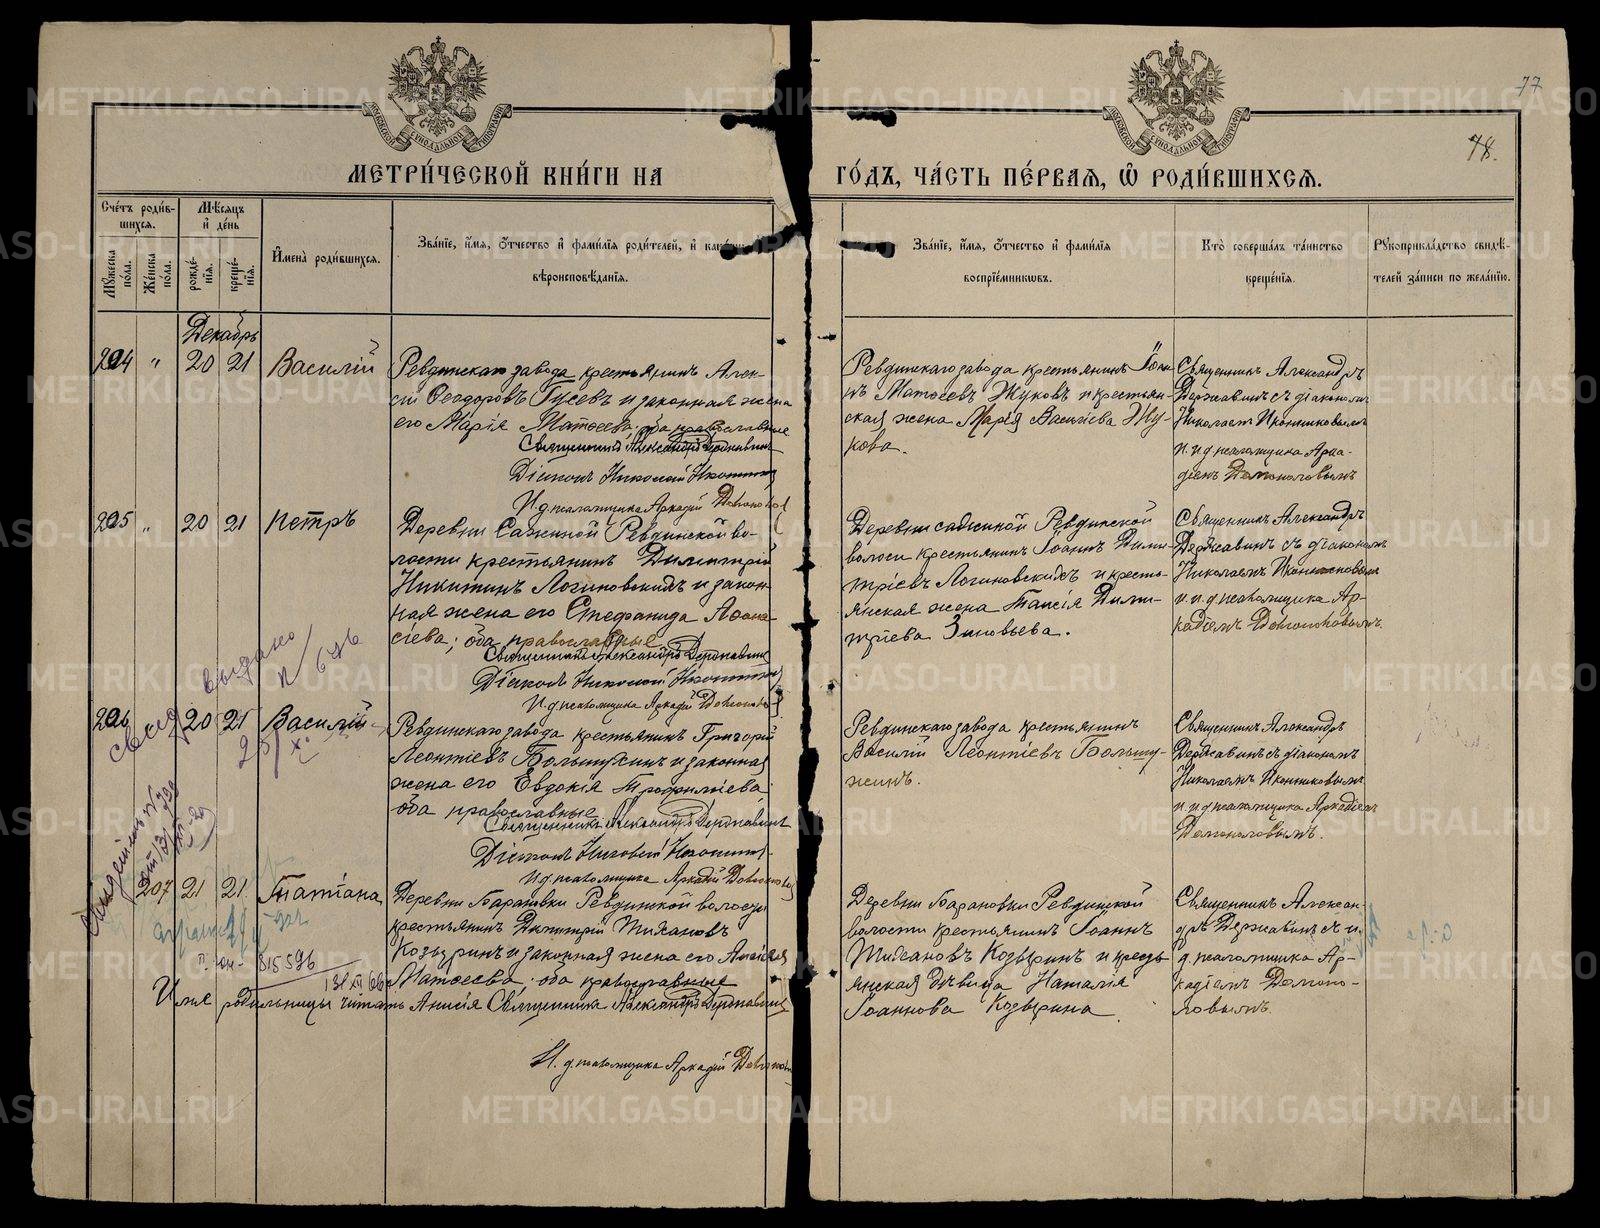 77
78.
МЕТРИ́ЧЕСКОЙ КНИ́ГИ НА
ГО́ДЪ, ЧА́СТЬ ПЕ́РВАЯ, Ѡ РОДИ́ВШИХСЯ.
Сче́тъ роди́в-
шихся.
Мѣ́сяцъ
и҆ де́нь
Мꙋ́жеска по́ла.
Же́нска по́ла.
рожде́-
нїя.
креще́-
нїя.
И҆мена̀ роди́вшихся.
Зва́нїе, и҆́мя, ѻ҆́тчество и҆ фами́лїя роди́телей, и҆
вѣроисповѣ́данїя.
Зва́нїе, и҆́мя, ѻ҆́тчество и҆ фами́лїя
воспрїе́мникωвъ.
Кто̀ соверша́лъ та́инство
креще́нїя.
Рꙋкоприкла́дство свидѣ́-
телей за́писи по жела́нїю.
Декабрь
204 " 20 21 Василій
Ревдинскаго завода крестьянинъ Алек-
сій Ѳеодоровъ Гусевъ и законная жена
его Марія Матѳеева, оба православные
Священникъ Александръ Державинъ
Діаконъ Николай
И. д. псаломщика Аркадій
Ревдинскаго завода крестьянинъ Іоан-
нъ Матѳеевъ Жуковъ и крестьян-
ская жена Марія Васильева Жу-
кова.
Священникъ Александръ
Державинъ съ діакономъ
Николаемъ Иконниковымъ
и и. д. псаломщика Арка-
діемъ
205 " 20 21 Петръ
Деревни Сажиной Ревдинской во-
лости крестьянинъ Димитрій
Никитинъ Логиновскихъ и закон-
ная жена его Стефанида Аѳана-
сіева; оба православные
Священникъ Александръ Державинъ
Діаконъ Николай
И. д. псаломщика Аркадій
Деревни Сажиной Ревдинской
волости крестьянинъ Іоаннъ Дими-
тріевъ Логиновскихъ и кресть-
янская жена Таисія Дими-
тріева Зиновьева.
Священникъ Александръ
Державинъ съ діакономъ
Николаемъ Иконниковымъ
и и. д. псаломщика Ар-
кадіемъ
выдано
206 20 21 Василій
Ревдинскаго завода крестьянинъ Григорій
Леонтіевъ и законная
жена его Евдокія Трофимьева
оба православные
Священникъ Александръ Державинъ
Діаконъ Николай
И. д. псаломщика Аркадій
Ревдинскаго завода крестьянинъ
Василій Леонтіевъ
Священникъ Александръ
Державинъ съ діакономъ
Николаемъ Иконниковымъ
и и. д. псаломщика Аркадіемъ
207 21 21 Татіана
Деревни Барановки Ревдинской волости
крестьянинъ Димитрій Тихановъ
Козыринъ и законная жена его Анисія
Матѳеева; оба православные
815596
Имя родильницы читать Анисія Священникъ Александръ Державинъ
И. д. псаломщика Аркадій
Деревни Барановки Ревдинской
волости крестьянинъ Іоаннъ
Тихановъ Козыринъ и кресть-
янская дѣвица Наталія
Іоаннова Козырина
Священникъ Алексан-
дръ Державинъ съ и.
д. псаломщика Ар-
кадіемъ
METRIKI.GASO-URAL.RU